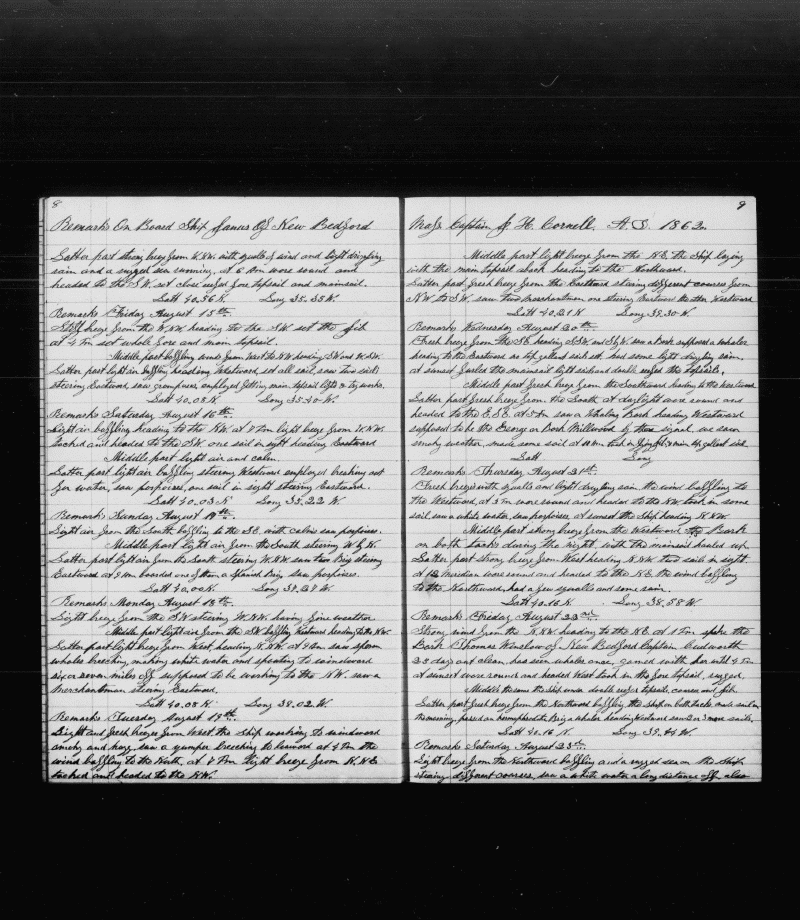 8
Remarks On Board Ship Janus Of New Bedford
Latter part strong breeze from W.NW. with squalls of wind and light drizzling
rain and a rugged sea running, at 6 Am wore round and
headed to the SW. set close reefed fore topsail and mainsail.
Latt 40.56 N. Long 35.35 W.
Remarks Friday August 15th.
breeze from the W. NW. heading to the SW set the jib
at 4 Pm set whole fore and main topsail.
Middle part baffling winds from West to NW. heading SW and W.SW.
Latter part light air baffling heading Westward, set all sail, saw two sails
steering Eastward, saw grampuses, employed main topsail
Latt 40.08 N Long 35.40 W.
Remarks Saturday August 16th.
Light air baffling heading to the NW at 7 Pm light breeze from W.NW.
tacked and headed to the SW. one sail in sight heading Eastward
Middle part light air and calm.
Latter part light air baffling steering Westward employed breaking out
for water, saw porpoises, one sail in sight steering Eastward.
Latt 40.03 N Long 35.22 W.
Remarks Sunday August 17th.
Light air from the South baffling to the SE. with calms saw porpoises.
Middle part light air from the South steering W by N.
Latter part light air from the South steering W.NW. saw two Brig steering
Eastward at 9 Am boarded one of them a Spanish Brig saw porpoises.
Latt 40.00 N. Long 37.27 W.
Remarks Monday August 18th.
Light breeze from the SW steering W.NW. having fine weather
Middle part light air from the SW baffling Westward heading to the NW.
Latter part light breeze from West, heading N.NW. at 9 Am saw sperm
whales breaching, making white water and spouting to windward
six or seven miles off supposed to be working to the NW. saw a
Merchantman steering Eastward.
Latt 40.08 N. Long 38.02 W.
Remarks Tuesday August 19th.
Light and fresh breeze from West the ship working to windward
smoky and hazy, saw a jumper breaching to leeward at 4 Pm the
wind baffling to the North, at 7 Pm light breeze from N.NE
tacked and headed to the NW.
9
Mass Captain H. Cornell. A.D. 1862.
Middle part light breeze from the NE. the Ship laying
with the main topsail aback heading to the Northward.
Latter part fresh breeze from the Eastward steering different courses from
NW. to SW. saw two Merchantmen one steering Eastward the other Westward
Latt 40.21 N. Long 39.30 W.
Remarks Wednesday August 20th.
Fresh breeze from the SE heading S.SW. and S by W. saw a Bark supposed a whaler
heading to the Eastward no top gallant sails set had some light drizzling rain.
at sunset furled the mainsail light sails and double reefed the topsails.
Middle part fresh breeze from the Southward heading to the Westward
Latter part fresh breeze from the South. at daylight wore round and
headed to the E.SE. at 5 Am saw a Whaling Bark heading Westward
supposed to be the George or Bark Millwood by their signal, we seen
smoky weather, made some sail at 10 Am
Latt Long
Remarks Thursday August 21st.
Fresh breeze with squalls and light drizzling rain. the wind baffling to
the Westward, at 3 Pm wore round and headed to the NW. took in some
sail. saw a white water, saw porpoises, at sunset the ship heading N.NW.
Middle part strong breeze from the Westward the Bark
on both tacks during the night with the mainsail hauled up
Latter part strong breeze from West heading N.NW. two sails in sight
at Meridian wore round and headed to the NE. the wind baffling
to the Northward, had a few squalls and some rain.
Latt 40.16 N. Long 38.58 W.
Remarks Friday August 22nd.
Strong wind from the N.NW. heading to the NE. at 1 Pm spoke the
Bark Thomas Winslow of New Bedford Captain Cudworth
23 days out clean, has seen whales once, gamed with her until 4 Pm
at sunset wore round and headed West took in the fore topsail, rugged.
Middle the same the ship under double reefs topsails, courses and jib.
Latter part fresh breeze from the Northward baffling the ship on both tacks made sail in
the morning, passed an Brig a whaler heading Westward saw 2 or 3 more sails.
Latt 40.16 N. Long 39.49 W.
Remarks Saturday August 23rd.
Light breeze from the Northward baffling and a rugged sea on the Ship
steering different courses, saw a white water a long distance off also